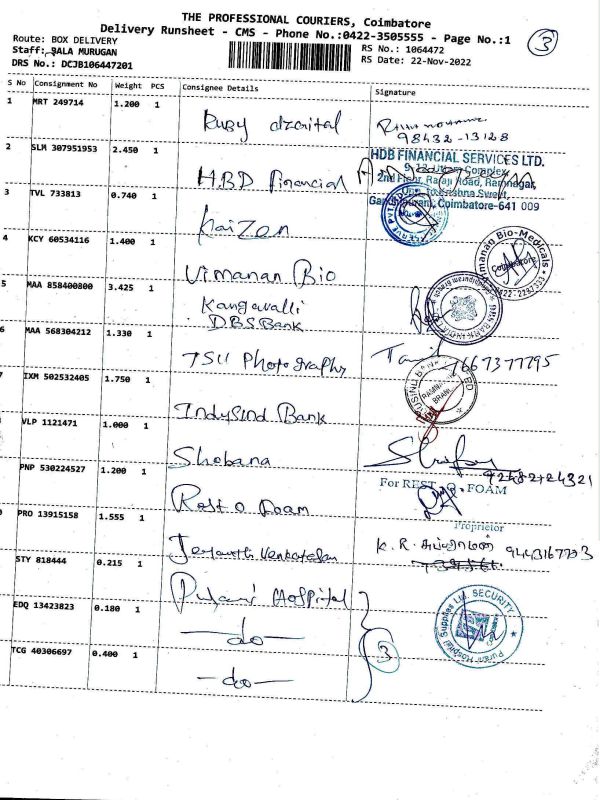 THE PROFESSIONAL COURIERS, Coimbatore
Delivery Runsheet - CMS - Phone No.:0422-3505555 - Page No.:1
3
Route: BOX DELIVERY
Staff: BALA MURUGAN
DRS No.: DCJB106447201
RS No.: 1064472
RS Date: 22-Nov-2022
S No Consignment No Weight PCS Consignee Details Signature
1 MRT 249714 1.200 1 Ruby dzcrital
98432-13128
2 SLM 307951953 2.450 1 HBD Financial
HDB FINANCIAL SERVICES LTD.
2nd Floor, Rajaji Road, Ramnagar,
Opp. to Krishna Sweet,
Gandhipuram, Coimbatore-641 009
3 TVL 733813 0.740 1 Kaizen
4 KCY 60534116 1.400 1 Vimanan Bio
Vimanan Bio-Medicals
Coimbatore
5 MAA 858400800 3.425 1 Kangavalli
DBS Bank
6 MAA 568304212 1.330 1 TSU Photography
7667377795
7 IXM 502532405 1.750 1 Indusind Bank
VLP 1121471 1.000 1 Shobana
92482124321
PNP 530224527 1.200 1 Rest o Foam
For REST O FOAM
Proprietor
PRO 13915158 1.555 1 Jeyanth Venkatesan
K. R. 9443167703
STY 818444 0.215 1 Purani Hospital
EDQ 13423823 0.180 1 —do—
3
Purani Hospital Supplies Ltd. SECURITY
TCG 40306697 0.400 1 —do—